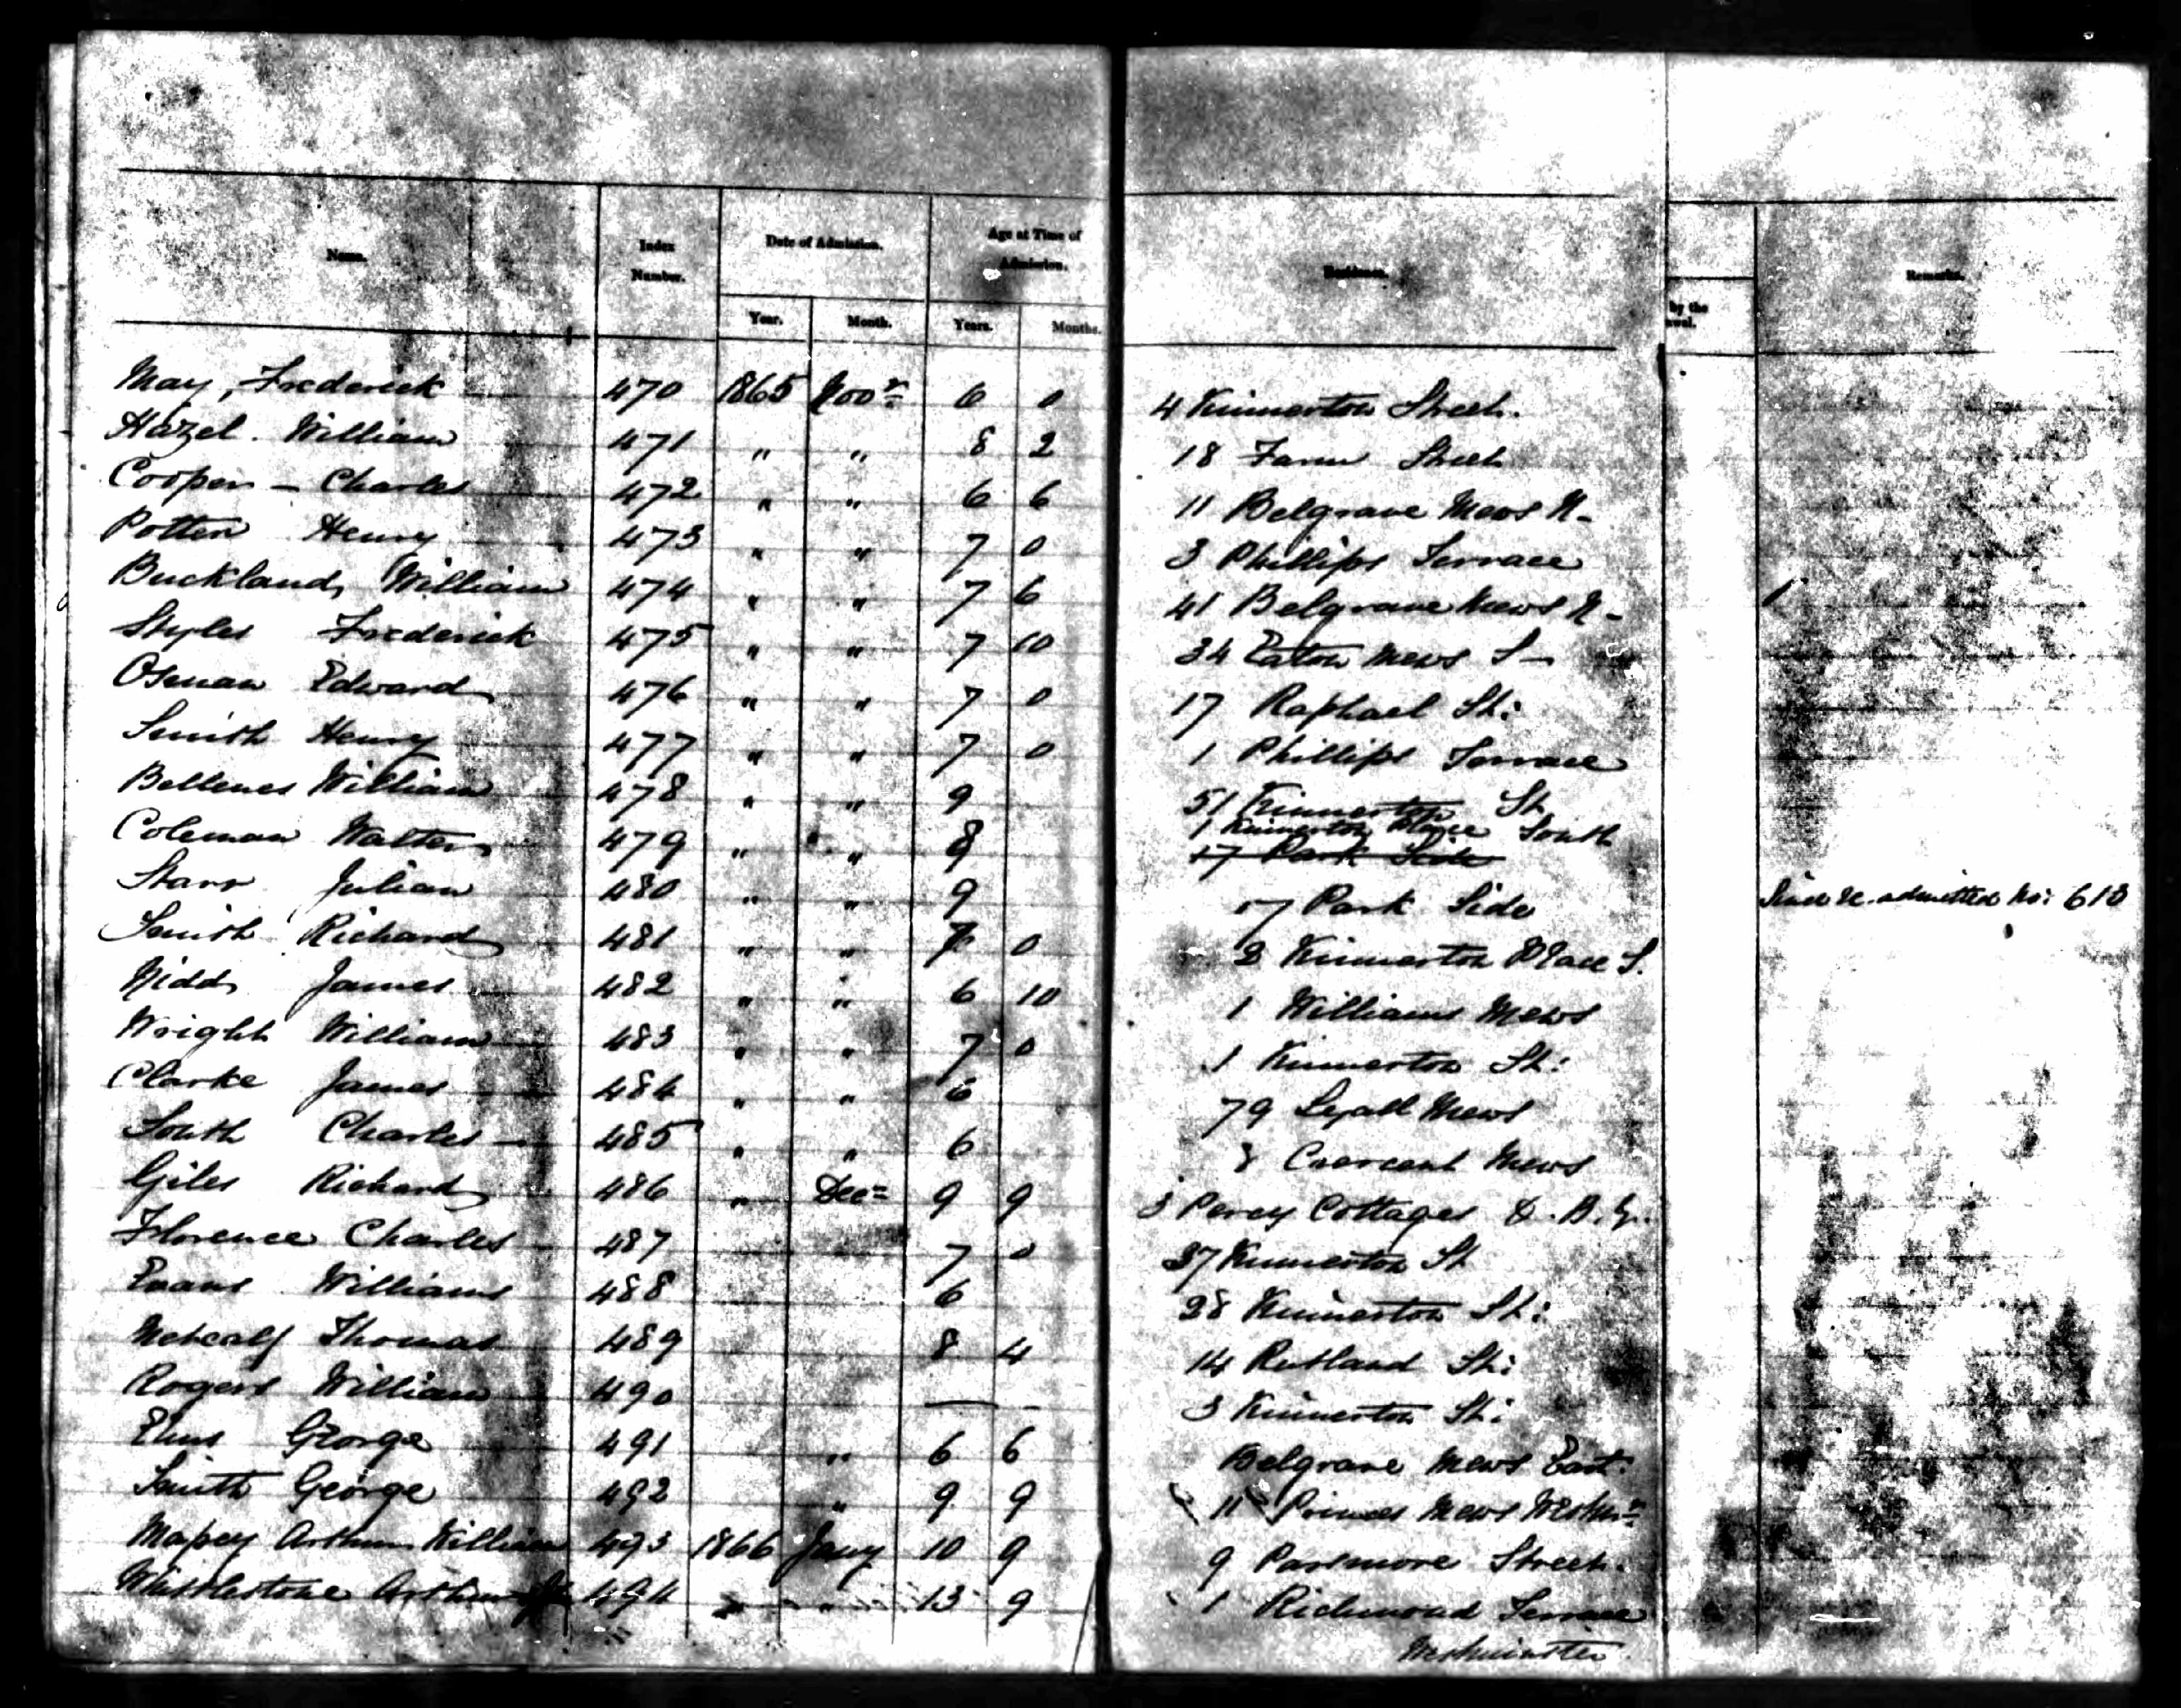 Name. Index Number. Date of Admission. Age at Time of Admission. Residence. by the Remarks.
Year. Month. Years. Months.
May, Frederick 470 1865 Novr 6 0 4 Kinnerton Street.
Hazel. William 471 " " 8 2 18 Farm Street
Cooper - Charles 472 " " 6 6 11 Belgrave Mews N-
Potter Henry 473 " " 7 0 3 Phillips Terrace
Buckland William 474 " " 7 6 41 Belgrave Mews N-
Styles Frederick 475 " " 7 10 34 Eaton Mews S-
Osman Edward 476 " " 7 0 17 Raphael St:
Smith Henry 477 " " 7 0 1 Phillips Terrace
William 478 " " 9 51 Kinnerton St
1 Kinnerton Place South
Coleman Walter 479 " " 8 17 Park Side
Starr Julian 480 " " 9 17 Park Side Since re-admitted No: 610
Smith Richard 481 " " 7 0 2 Kinnerton Place S.
Nidd James 482 " " 6 10 1 Williams Mews
Wright William 483 " " 7 0 1 Kinnerton St:
Clarke James 484 " " 6 79 Lyall Mews
South Charles 485 " " 6 8 Crescent Mews
Giles Richard 486 " Decr 9 9 3 Percy Cottages
Florence Charles 487 7 0 37 Kinnerton St
Evans William 488 6 28 Kinnerton St:
Metcalf Thomas 489 8 4 14 Rutland St:
Rogers William 490 — - 3 Kinnerton St:
George 491 " 6 6 Belgrave Mews East.
Smith George 492 " 9 9 11 Princes Mews Westmr
Arthur William 493 1866 Jany 10 9 9 Street.
Arthur 494 " " 13 9 1 Richmond Terrace
Westminster